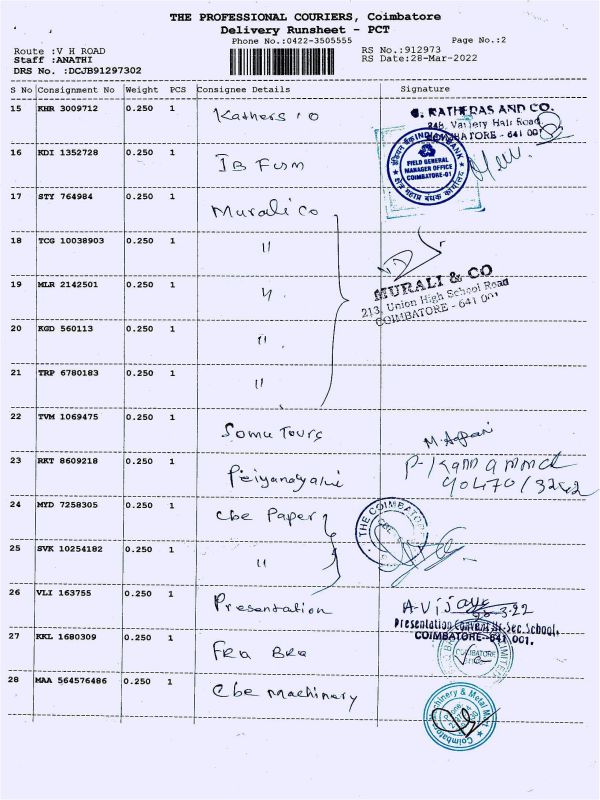 THE PROFESSIONAL COURIERS, Coimbatore
Delivery Runsheet - PCT
Phone No.:0422-3505555 Page No.:2
Route :V H ROAD RS No.:912973
Staff :ANATHI RS Date:28-Mar-2022
DRS No. :DCJB91297302
S No Consignment No Weight PCS Consignee Details Signature
15 KHR 3009712 0.250 1 Kathers
RATHERAS AND CO.
COIMBATORE - 641 001
16 KDI 1352728 0.250 1 IB Firm
INDIAN BANK
FIELD GENERAL
MANAGER OFFICE
COIMBATORE-01
17 STY 764984 0.250 1 Murali Co
18 TCG 10038903 0.250 1 "
19 MLR 2142501 0.250 1 "
MURALI & CO
213, Union High School Road
COIMBATORE - 641 001
20 KGD 560113 0.250 1 "
21 TRP 6780183 0.250 1 "
22 TVM 1069475 0.250 1 Somu Tours
23 RKT 8609218 0.250 1
24 MYD 7258305 0.250 1 Cbe Paper
THE COIMBATORE
25 SVK 10254182 0.250 1 "
26 VLI 163755 0.250 1 Presentation
Presentation Convent Hr.Sec.School,
COIMBATORE-641 001.
27 KKL 1680309 0.250 1 Fra Bra
COIMBATORE
28 MAA 564576486 0.250 1 Cbe machinery
Coimbatore Machinery & Metal Mart